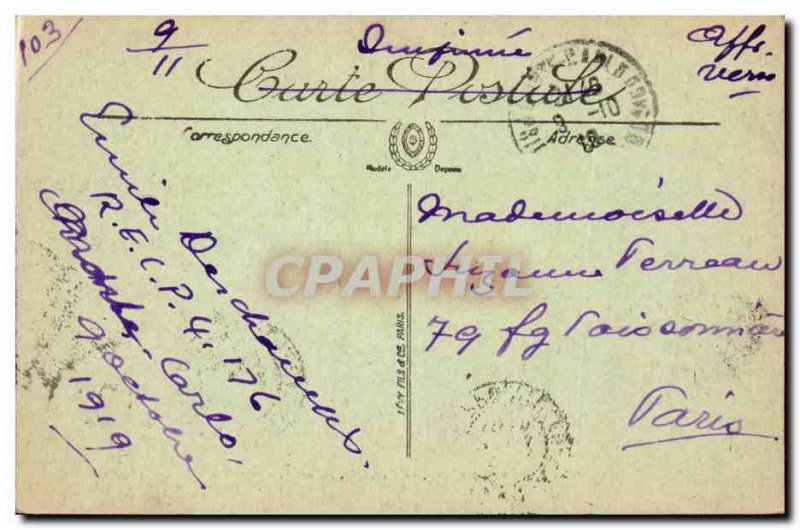 103
9
11
Imprimé
Affr.
verso
Carte Postale
Correspondance.
Adresse
Modèle Deposée
Emile Deschanux.
R.E.C.P. 4. 176
Monte-Carlo,
9 octobre
1919
Mademoiselle
Suzanne Terreau
79 fg Poissonnière
Paris
LEVY FILS & Cie PARIS.
CPAPHIL